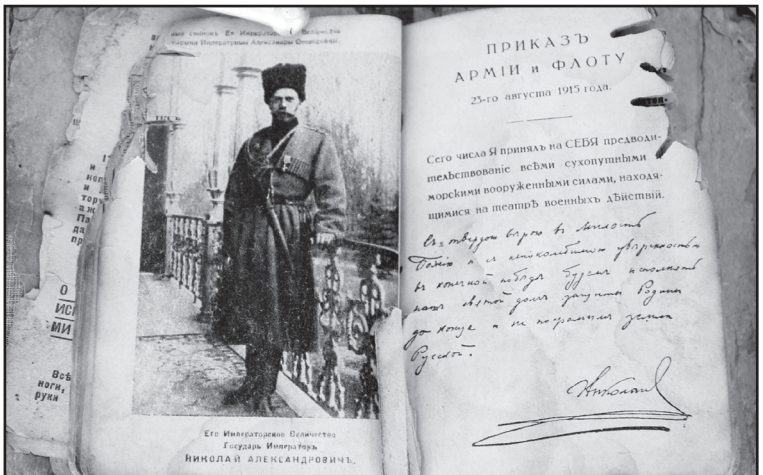 Александры Феодоровны.
О
ИСП
МИ
Всѣ
ноги,
руки
Его Императорское Величество
Государь Императоръ
НИКОЛАЙ АЛЕКСАНДРОВИЧЪ.
ПРИКАЗЪ
АРМІИ и ФЛОТУ
23-го августа 1915 года.
Сего числа Я принялъ на СЕБЯ предводи-
тельствованіе всѣми сухопутными
морскими вооруженными силами, находя-
щимися на театрѣ военныхъ дѣйствій.
Съ твердою вѣрою въ милость
Божію и съ непоколебимою увѣренностью
въ конечной побѣдѣ будемъ исполнять
нашъ святой долгъ защиты Родины
до конца и не посрамимъ земли
Русской.
Николай